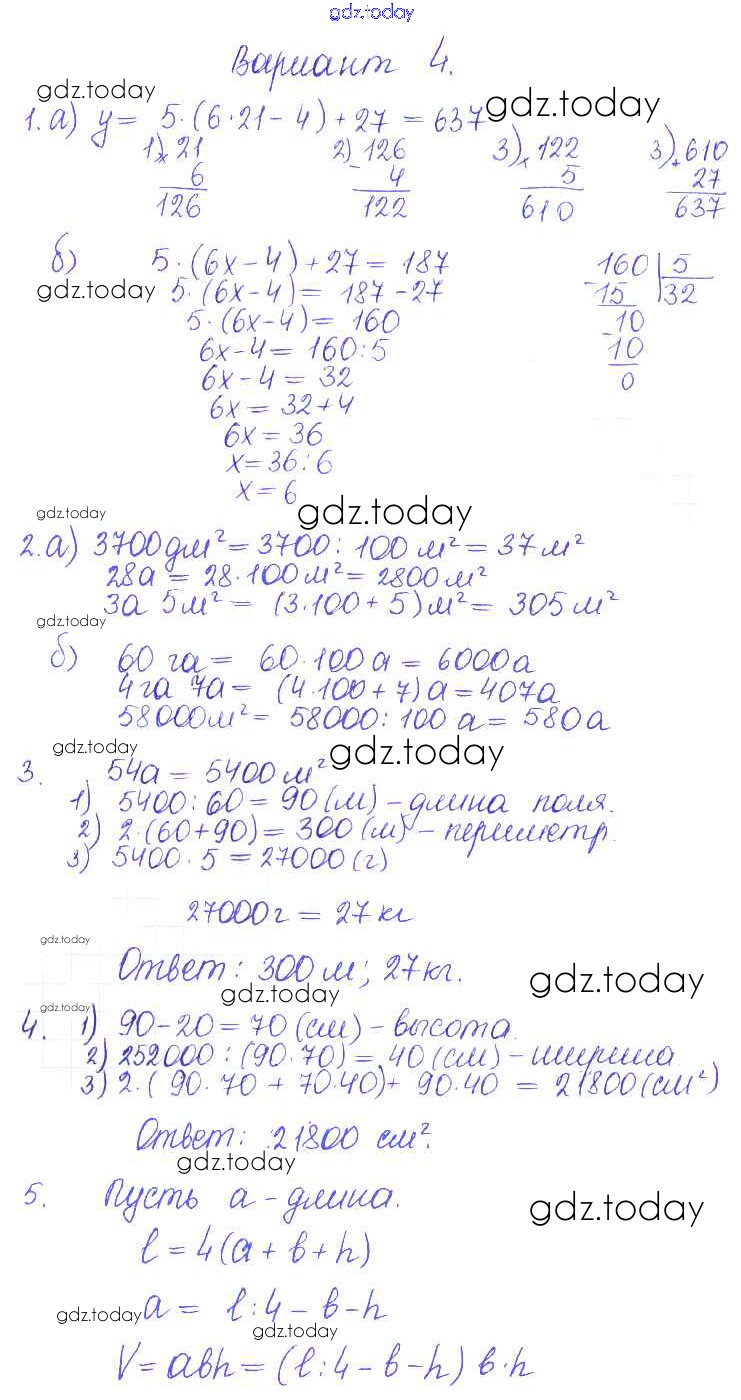 gdz.today
Вариант 4.
gdz.today
gdz.today
1. а) y = 5·(6·21-4)+27 = 637
1) × 21 2) - 126 3) × 122 3) + 610
6 4 5 27
126 122 610 637
б) 5·(6x-4)+27 = 187 160 | 5
gdz.today 5·(6x-4) = 187-27 - 15 | 32
5·(6x-4) = 160 - 10
6x-4 = 160:5 10
6x-4 = 32 0
6x = 32+4
6x = 36
x = 36:6
x = 6
gdz.today gdz.today
2. а) 3700 дм² = 3700:100 м² = 37 м²
28а = 28·100 м² = 2800 м²
3а 5м² = (3·100+5) м² = 305 м²
gdz.today
б) 60 га = 60·100 а = 6000а
4га 7а = (4·100+7) а = 407а
58000м² = 58000:100 а = 580 а
gdz.today gdz.today
3. 54а = 5400 м²
1) 5400:60 = 90 (м) - длина поля.
2) 2·(60+90) = 300 (м) - периметр.
3) 5400·5 = 27000 (г)
27000г = 27 кг
gdz.today
Ответ: 300 м; 27 кг.
gdz.today
gdz.today
gdz.today
4. 1) 90-20 = 70 (см) - высота.
2) 252000:(90·70) = 40 (см) - ширина
3) 2·(90·70 + 70·40) + 90·40 = 21800 (см²)
Ответ: 21800 см².
gdz.today
5. Пусть a - длина.
gdz.today
l = 4(a+b+h)
gdz.today a = l:4-b-h
gdz.today
V = abh = (l:4-b-h) b·h